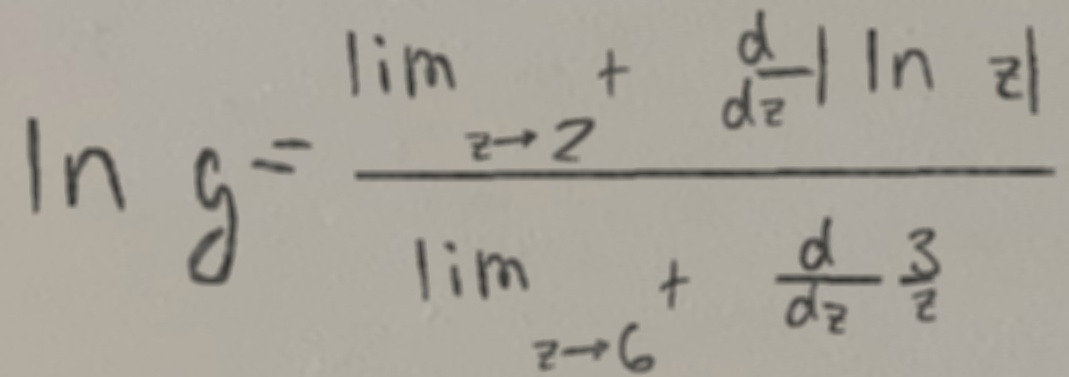 \ln g = \frac{\lim_{z \to 2^+} \frac{d}{dz} |\ln z|}{\lim_{z \to 6^+} \frac{d}{dz} \frac{3}{z}}